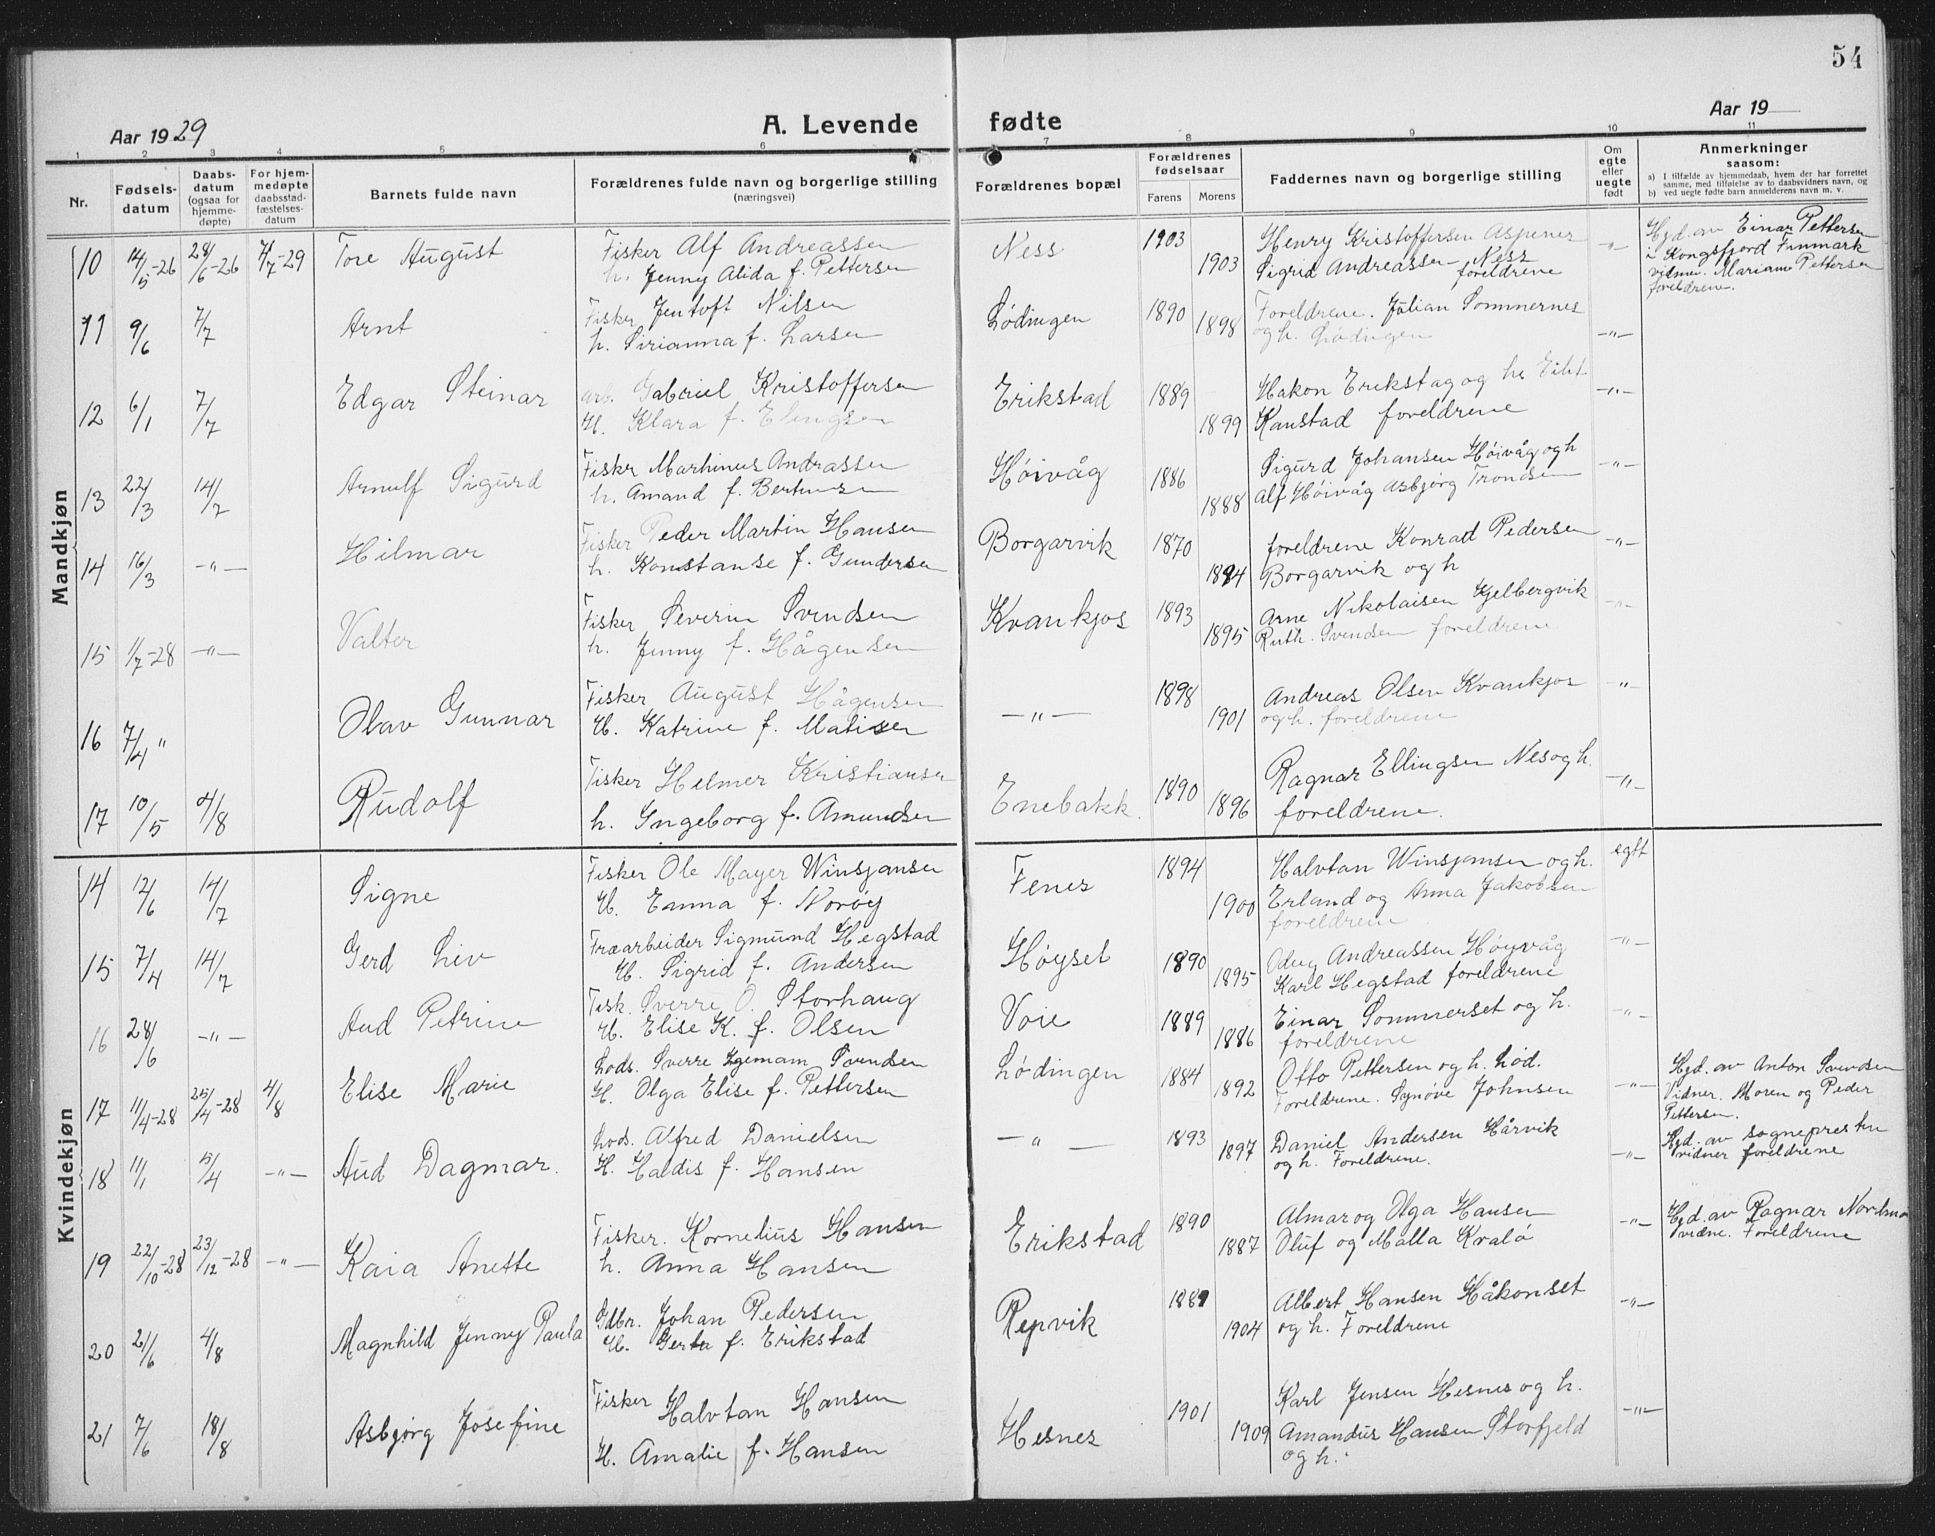 54
Aar 1929 A. Levende fødte Aar 19
1 2 3 4 5 6 7 8 9 10 11
Nr. Fødsels-datum Daabs-datum (ogsaa for hjemme-døpte) For hjem-medøpte daabsstad-fæstelses-datum Barnets fulde navn Forældrenes fulde navn og borgerlige stilling (næringsvei) Forældrenes bopæl Forældrenes fødselsaar Farens Morens Faddernes navn og borgerlige stilling Om egte eller uegte født Anmerkninger saasom:
a) I tilfælde av hjemmedaab, hvem der har forrettet samme, med tilføielse av to daabsvidners navn, og
b) ved uegte fødte barn anmelderens navn m. v.
Mandkjøn
10 14/5-26 28/6-26 7/7-29 Tore August Fisker Alf Andreassen Ness 1903 Henry Kristoffersen Aspenes -"- Hjd. av Einar Pettersen
h. Jenny Alida f. Pettersen 1903 Sigrid Andreassen Ness foreldrene i Kongsfjord Finmark
vidner. Marianne Pettersen
foreldrene.
11 9/6 7/7 Arnt Fisker Jentoft Nilsen Lødingen 1890 Foreldrene. Julian Sommernes
h. Sirianna f. Larsen 1898 og h. Lødingen -"-
12 6/1 7/7 Edgar Steinar arb. Gabriel Kristoffersen Erikstad 1889 Hakon Erikstag og h. -"-
H. Klara f. Elingsen 1899 Kanstad foreldrene
13 22/3 14/7 Arnulf Sigurd Fisker Marhinus Andrassen Høivåg 1886 Sigurd Johansen Høivåg og h -"-
h. Amand f. 1888 Alf Høivåg Asbjørg Trondsen
14 16/3 -"- Hilmar Fisker Peder Martin Hansen Borgarvik 1870 foreldrene Konrad Pedersen -"-
h. Konstanse f. Gundersen 1894 Borgarvik og h
15 1/7-28 -"- Valter Fisker Severin Svendsen Kvankjos 1893 Arne Nikolaisen Kjelbergvik -"-
h. Jenny f. Hågensen 1895 Ruth. Svendsen foreldrene
16 7/4 " Olav Gunnar Fisker August Hågensen -"- 1898 Andreas Olsen Kvankjos -"-
H. Katrine f. Matisen 1901 og h. foreldrene
17 10/5 4/8 Rudolf Fisker Helmer Kristiansen Enebakk. 1890 Ragnar Ellingsen Nes og h. -"-
h. Ingeborg f. Amundsen 1896 foreldrene.
Kvindekjøn
14 12/6 14/7 Signe Fisker Ole Mayer Winsjansen Fenes 1894 Halvtan Winsjansen og h. egft
H. Emma f. Norøy 1900 Erland og Anna Jakobsen
foreldrene
15 7/4 14/7 Gerd Liv Træarbeider Sigmund Hegstad Høyset 1890 Odny Andreassen Høyvåg -"-
H. Sigrid f. Andersen 1895 Karl Hegstad foreldrene
16 28/6 -"- Aud Petrine Fisk. Sverre O. Storhaug Voie 1889 Einar Sommerset og h. -"-
H. Elise K. f. Olsen 1886 foreldrene
17 11/4-28 25/4-28 4/8 Elise Marie Lods. Sverre Ingemann Svendsen Lødingen 1884 Otto Pettersen og h. Lød. -"- Hjd. av Anton Svendsen
H. Olga Elise f. Pettersen 1892 Foreldrene. Synøve Johnsen Vidner. Moren og Peder
Pettersen.
18 11/1 5/4 -"- Aud Dagmar. Lods. Alfred Danielsen -"- 1893 Daniel Andersen Hårvik -"- Hjd. av sogneprest
H. Haldis f. Hansen 1897 og h. Foreldrene. vidner foreldrene
19 22/10-28 23/12-28 -"- Kaia Anette Fisker. Kornelius Hansen Erikstad 1890 Almar og Olga Hansen -"- Hjd. av Ragnar
h. Anna Hansen 1887 Oluf og Malla Kralø vidne. Foreldrene
20 21/6 4/8 Magnhild Jenny Paula Gdbr. Johan Pedersen Repvik 1889 Albert Hansen Håkonset -"-
H. Gerda f. Erikstad 1904 og h. Foreldrene
21 7/6 18/8 Asbjørg Josefine Fisker Halvtan Hansen Hesnes 1901 Karl Jensen Hesnes og h. -"-
H. Amalie f. Hansen 1909 Amandus Hansen Storfjeld
og h.